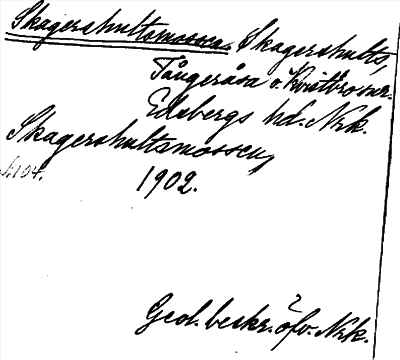 Skagershultsmossen. Skagershults,
Tångeråsa o. Kvistbro snr.
Edsbergs hd. Nrk.
Skagershultsmossen,
s. 104. 1902.
Geol. beskr. öfv. Nrk.